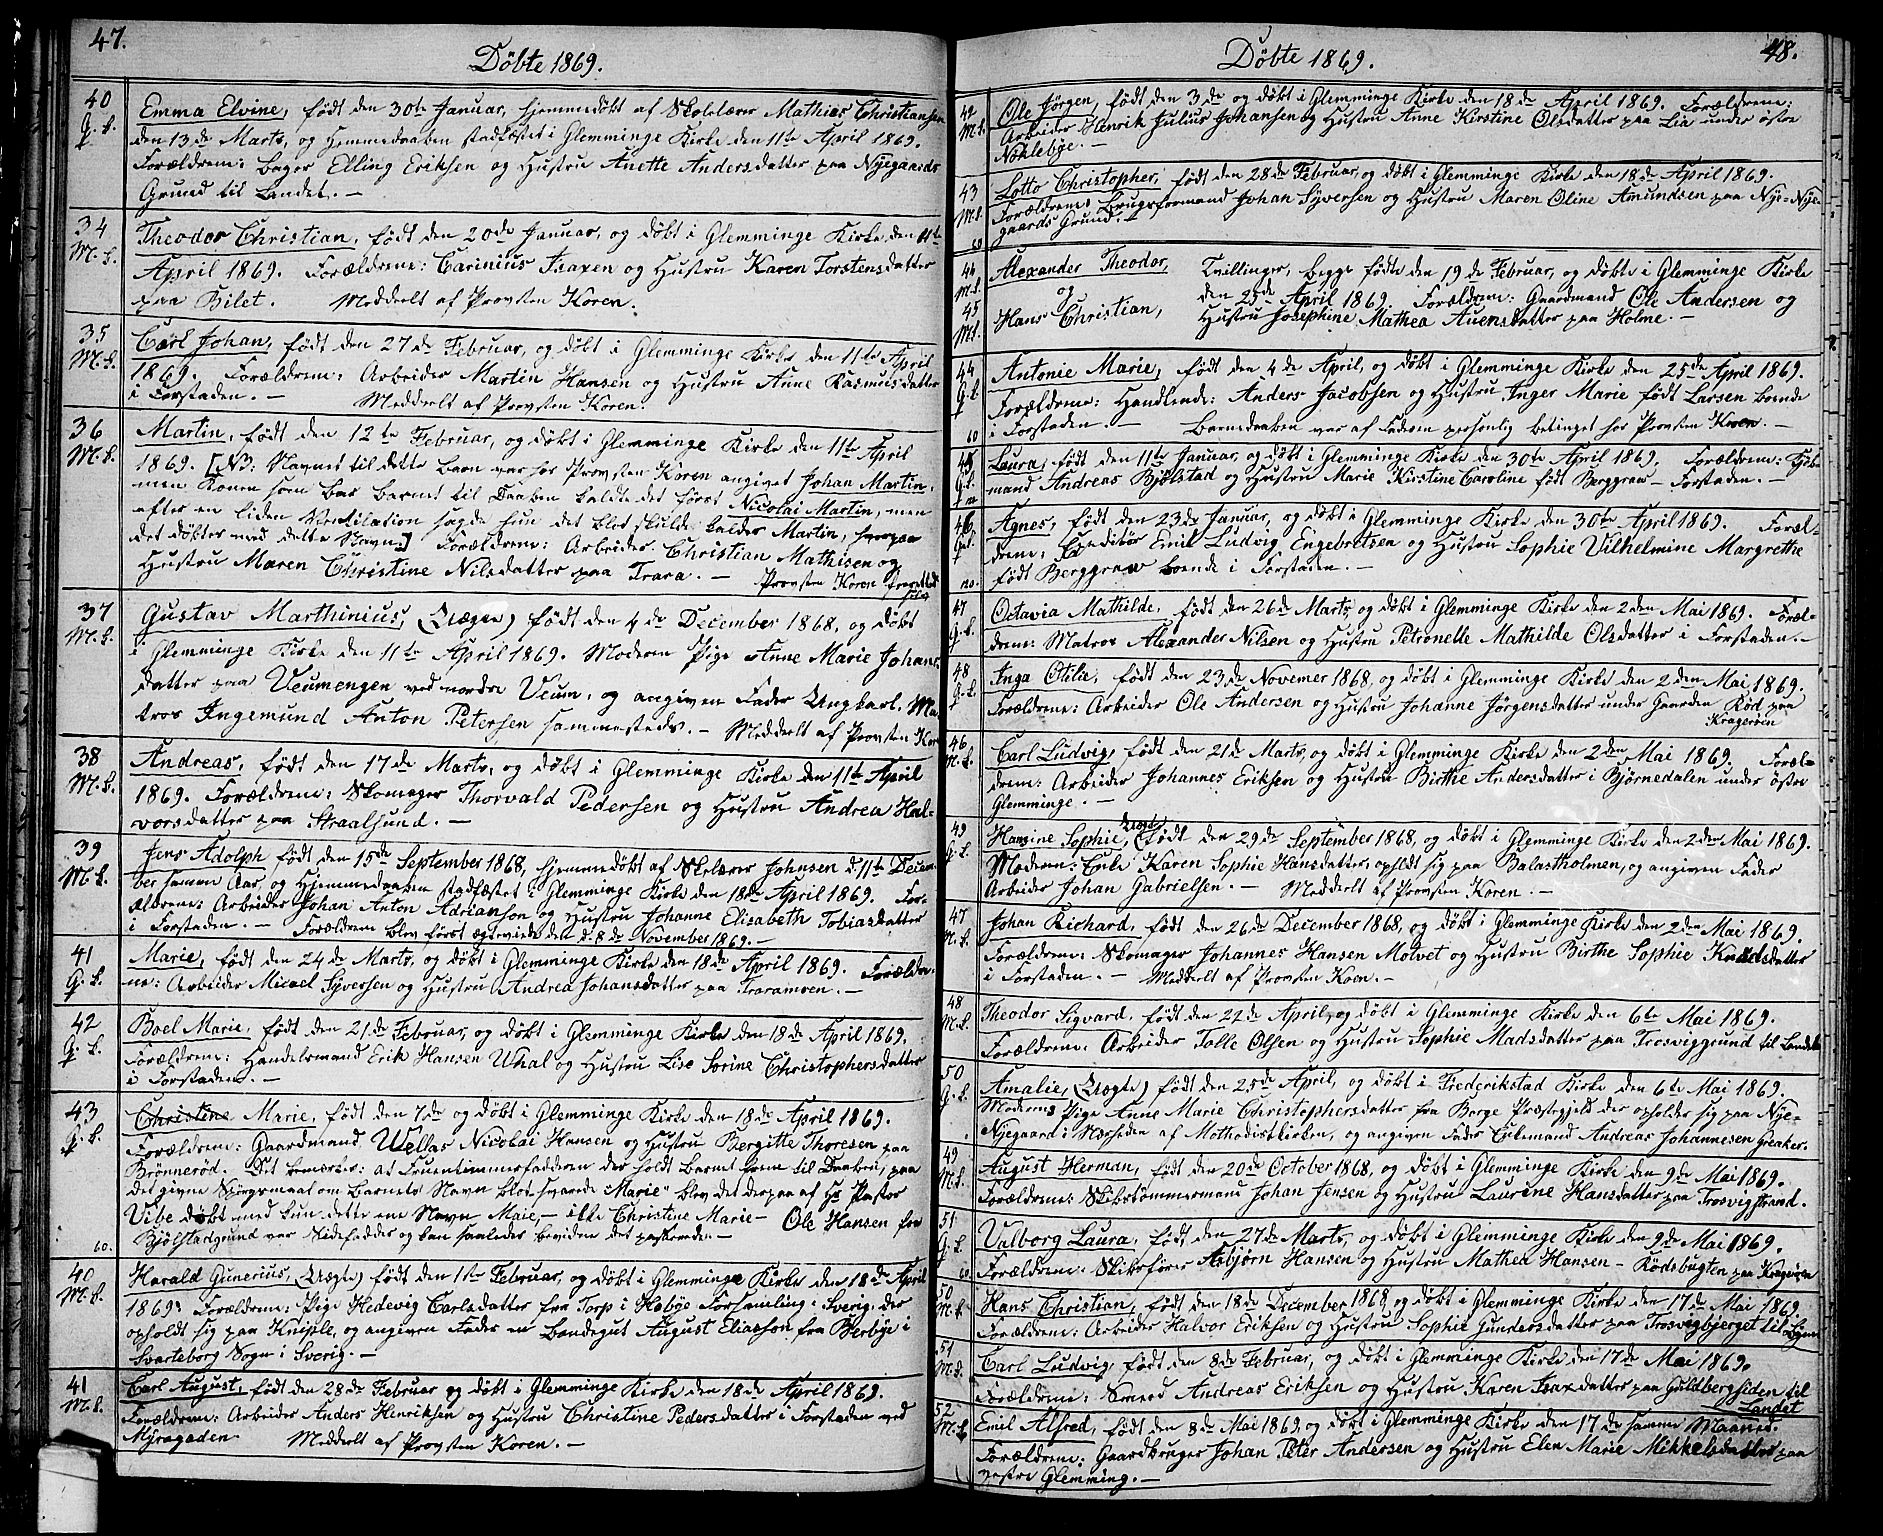 47.
Døbte 1869.
40
G. L.
Emma Elvine, født den 30te Januar, hjemmedøbt af Skolelærer Mathias Christiansen
den 13de Marts, og Hjemmedaaben stadfæstet i Glemminge Kirke den 11te April 1869.
Forældrene: Bager Elling Eriksen og Hustru Anette Andersdatter paa Nyegaards
Grund til Landet. —
34
M. L.
Theodor Christian, født den 20de Januar, og døbt i Glemminge Kirke den 11te
April 1869. Forældrene: Carinius Isaxen og Hustru Karen Torstensdatter
paa Bilet. Meddeelt af Provsten Koren.
35
M. L.
Carl Johan, født den 27de Februar, og døbt i Glemminge Kirke den 11te April
1869. Forældrene: Arbeider Martin Hansen og Hustru Anne Rasmusdatter
i Forstaden. — Meddeelt af Provsten Koren.
36
M. L.
Martin, født den 12te Februar, og døbt i Glemminge Kirke den 11te April
1869. [NB: Navnet til dette barn var for Provsten Koren angivet Johan Martin,
men Konen som bar barnet til Daaben kaldte det først Nicolai Martin, men
efter en liden Ventilation sagde hun det blot skulde kaldes Martin,
det døbtes med dette Navn.] Forældrene: Arbeider Christian Mathisen og
Hustru Maren Christine Nilsdatter paa Trara. — Provsten Koren
37
M. L.
Gustav Marthinius, (Uægte) født den 4de December 1868, og døbt
i Glemminge Kirke den 11te April 1869. Moderen Pige Anne Marie Johans-
datter paa Veumengen ved nordre Veum, og angiven Fader Ungkarl, Ma-
tros Ingemund Anton Petersen sammesteds. — Meddeelt af Provsten Kor
38
M. L.
Andreas, født den 17de Marts, og døbt i Glemminge Kirke den 11te April
1869. Forældrene: Skomager Thorvald Pedersen og Hustru Andrea Hal-
vorsdatter paa Straalsund. —
39
M. L.
Jens Adolph født den 15de September 1868, hjemmedøbt af Skolelærer Johnsen d. 11te Decem-
ber samme Aar, og Hjemmedaaben stadfæstet i Glemminge Kirke den 18de April 1869. For-
ældrene: Arbeider Johan Anton Adrianson og Hustru Johanne Elisabeth Tobiasdatter
i Forstaden. — Forældrene blev først ægteviede den d. 8de November 1869. —
41
G. L.
Marie, født den 24de Marts, og døbt i Glemminge Kirke den 18de April 1869. Forældre-
ne: Arbeider Micael Syversen og Hustru Andrea Johansdatter paa Traramoen. —
42
G. L.
Boel Marie, født den 21de Februar, og døbt i Glemminge Kirke den 18de April 1869.
Forældrene: Handelsmand Erik Hansen Uhal og Hustru Lise Sorine Christophersdatter
i Forstaden. —
43
G. L.
60.
Christine Marie, født den 7de og døbt i Glemminge Kirke den 18de April 1869.
Forældrene: Gaardmand Wellas Nicolai Hansen og Hustru Bergitte Thoresen paa
Brønnerød. Det bemærkes: at Fruentimmerfadderen der holdt Barnet frem til Daaben, paa
det givne Spørgsmaal om Barnets Navn blot svarede "Marie" blev det derpaa af Hr Pastor
Vibe døbt med kun dette ene Navn Maie, — ikke Christine Marie — Ole Hansen fra
Bjølstadgrund var Sidefadder og kan saaledes bevidne det passerede. —
40
M. L.
Harald Gunerius, (Uægte) født den 11te Februar, og døbt i Glemminge Kirke den 18de April
1869: Forældrene: Pige Hedevig Carlsdatter fra Torp i Høbøe Forsamling i Sverig, der
opholdt sig paa Kniple, og angiven Fader en Bondegut August Eliasson fra Berbye i
Svarteborg Sogn i Sverig. —
41
M. L.
Carl August, født den 28de Februar og døbt i Glemminge Kirke den 18de April 1869.
Forældrene: Arbeider Anders Henriksen og Hustru Christine Pedersdatter i Forstaden ved
Myragaden Meddeelt af Provsten Koren. —
48.
Døbte 1869.
42
M. L.
Ole Jørgen, født den 3de og døbt i Glemminge Kirke den 18de April 1869. Forældrene:
Arbeider Henrik Julius Johansen og Hustru Anne Kirstine Olsdatter paa Lia under østre
Nøklebye. —
43
M. L.
60
Lotto Christopher, født den 28de Februar, og døbt i Glemminge Kirke den 18de April 1869.
Forældrene: Brugsformand Johan Syversen og Hustru Maren Oline Amundsen paa Nye-Nye-
gaards Grund. —
44
M. L.
45
M. L.
Alexander Theodor,
og
Hans Christian,
Tvillinger, begge fødte den 19de Februar, og døbte i Glemminge Kirke
den 25de April 1869. Forældrene: Gaardmand Ole Andersen og
Hustru Josephine Mathea Auensdatter paa Holme. —
44
G. L.
60
Antonie Marie, født den 4de April, og døbt i Glemminge Kirke den 25de April 1869.
Forældrene: Handlende: Anders Jacobsen og Hustru Inger Marie født Larsen boende
i Forstaden. — Barnedaaben var af Faderen personlig betinget hos Provsten Koren. —
45
G. L.
Laura, født den 11te Januar, og døbt i Glemminge Kirke den 30te April 1869. Forældrene: Kjøb-
mand Andreas Bjølstad og Hustru Marie Kirstine Caroline født Berggraw — Forstaden. —
46
G. L.
120.
Agnes, født den 23de Januar, og døbt i Glemminge Kirke den 30te April 1869. Foræl-
drene: Expeditør Emil Ludvig Engebretsen og Hustru Sophie Vilhelmine Margrethe
født Berggraw boende i Forstaden. —
47
G. L.
Octavia Mathilde, født den 26de Marts, og døbt i Glemminge Kirke den 2den Mai 1869. Foræl-
drene: Matros Alexander Nilsen og Hustru Petronelle Mathilde Olsdatter i Forstaden. —
48
G. L.
Inga Otilie, født den 23de Novemer 1868, og døbt i Glemminge Kirke den 2den Mai 1869.
Forældrene: Arbeider Ole Andersen og Hustru Johanne Jørgensdatter under Gaarden Rød paa
Kragerøen
46
M. L.
Carl Ludvig, født den 21de Marts, og døbt i Glemminge Kirke den 2den Mai 1869. Foræl-
drene: Arbeider Johannes Eriksen og Hustru Birthe Andersdatter i Bjørnedalen under østre
Glemminge. —
49
G. L.
Hansine Sophie, (Uægte) født den 29de September 1868, og døbt i Glemminge Kirke den 2den Mai 1869.
Moderen: Enke Karen Sophie Hansdatter, opholdt sig paa Balastholmen, og angiven Fader
Arbeider Johan Gabrielsen. — Meddeelt af Provsten Koren. —
47
M. L.
Johan Richard, født den 26de December 1868, og døbt i Glemminge Kirke den 2den Mai 1869.
Forældrene: Skomager Johannes Hansen Molvet og Hustru Birthe Sophie Knudsdatter
i Forstaden. — Meddeelt af Provsten Koen. —
48
M. L.
Theodor Sigvard, født den 22de April, og døbt i Glemminge Kirke den 6te Mai 1869.
Forældrene: Arbeider Tolle Olsen og Hustru Sophie Madsdatter paa Trosviggrund til Landet
50
G. L.
Amalie, (Uægte) født den 25de April, og døbt i Frederikstad Kirke den 6te Mai 1869.
Moderen: Pige Anne Marie Christophersdatter fra Borge Præstegjeld der opholder sig paa Nye-
Nyegaard i Nærheden af Methodistkirken, og angiven Fader Enkemand Andreas Johannesen Greaker.
49
M. L.
August Herman, født den 20de October 1868, og døbt i Glemminge Kirke den 9de Mai 1869.
Forældrene: Skibstømmermand Johan Jensen og Hustru Laurine Hansdatter paa Trosvigstrand.
51
G. L.
60
Valborg Laura, født den 27de Marts, og døbt i Glemminge Kirke den 9de Mai 1869.
Forældrene: Skibsfører Asbjørn Hansen og Hustru Mathea Hansen — Rødsbugten paa Kragerøen
50
M. L.
Hans Christian, født den 18de December 1868, og døbt i Glemminge Kirke den 17de Mai 1869.
Forældrene: Arbeider Halvor Eriksen og Hustru Sophie Gundersdatter paa Trosvigbjerget til
51
M. L.
Carl Ludvig, født den 8de Februar, og døbt i Glemminge Kirke den 17de Mai 1869.
Forældrene: Smeed Andreas Eriksen og Hustru Karen Isaxdatter paa Guldbergsiden til
Landet
52
M. L.
Emil Alfred, født den 8de Mai 1869, og døbt i Glemminge Kirke den 17de samme Maaned.
Forældrene: Gaardbruger Johan Peter Andersen og Hustru Elen Marie Mikkelsdatter paa
vestre Glemming. —